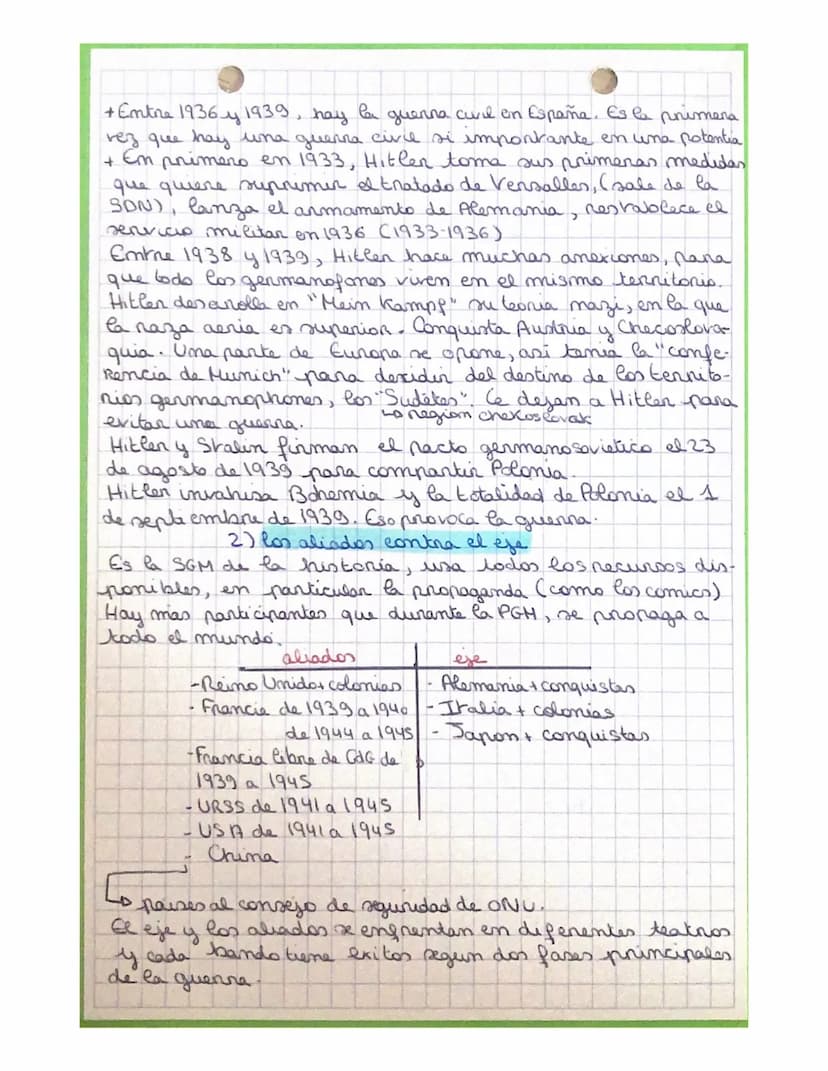 + Entre 1936 y 1939, hay la guerra civil en España. Es la primera
vez que hay una guerra civil si importante en una potentia
+ En primero en 1933, Hitler toma sus primeras medidas
que quiere suprimir el tratado de Versalles, (sale de la
SDN), lanza el armamento de Alemania, restablece el
servicio militar en 1936 (1933-1936)
Entre 1938 y 1939, Hitler hace muchas anexiones, para
que todo los germanofonos viven en el mismo territorio.
Hitler desarolla en "Mein Kampf" su teoria nazi, en la que
la raza aeria es superior. Conquista Austria y Checoslova-
quia. Una parte de Europa se opone, asi tenia la "confe-
rencia de Munich" para decidir del destino de los territo-
rios germanophones, los "Sudetes". Ce dejan a Hitler para
↳ region chekoslovak
evitar una guerra.
Hitler y Stalin firman el pacto germanosovietico el 23
de agosto de 1939 para compartir Polonia.
Hitler invahisa Bohemia y la totalidad de Polonia el 1
de septiembre de 1939. Eso provoca la guerra.
2) los aliados contra el eje
Es la SGM de la historia, usa todos los recursos dis-
ponibles, en particular la propaganda (como los comics)
Hay mas participantes que durante la PGM, se propaga a
todo el mundo.
aliados eje
-Reino Unido+ colonias - Alemania + conquistas
- Francia de 1939 a 1940 - Italia + colonias
de 1944 a 1945 - Japon + conquistas
-Francia libre de CdG de
1939 a 1945
- URSS de 1941 a 1945
- USA de 1941 a 1945
- China
↳ paises al consejo de seguridad de ONU.
El eje y los aliados se enfrentan en diferentes teatros
y cada bando tiene exitos segun dos fases principales
de la guerra.